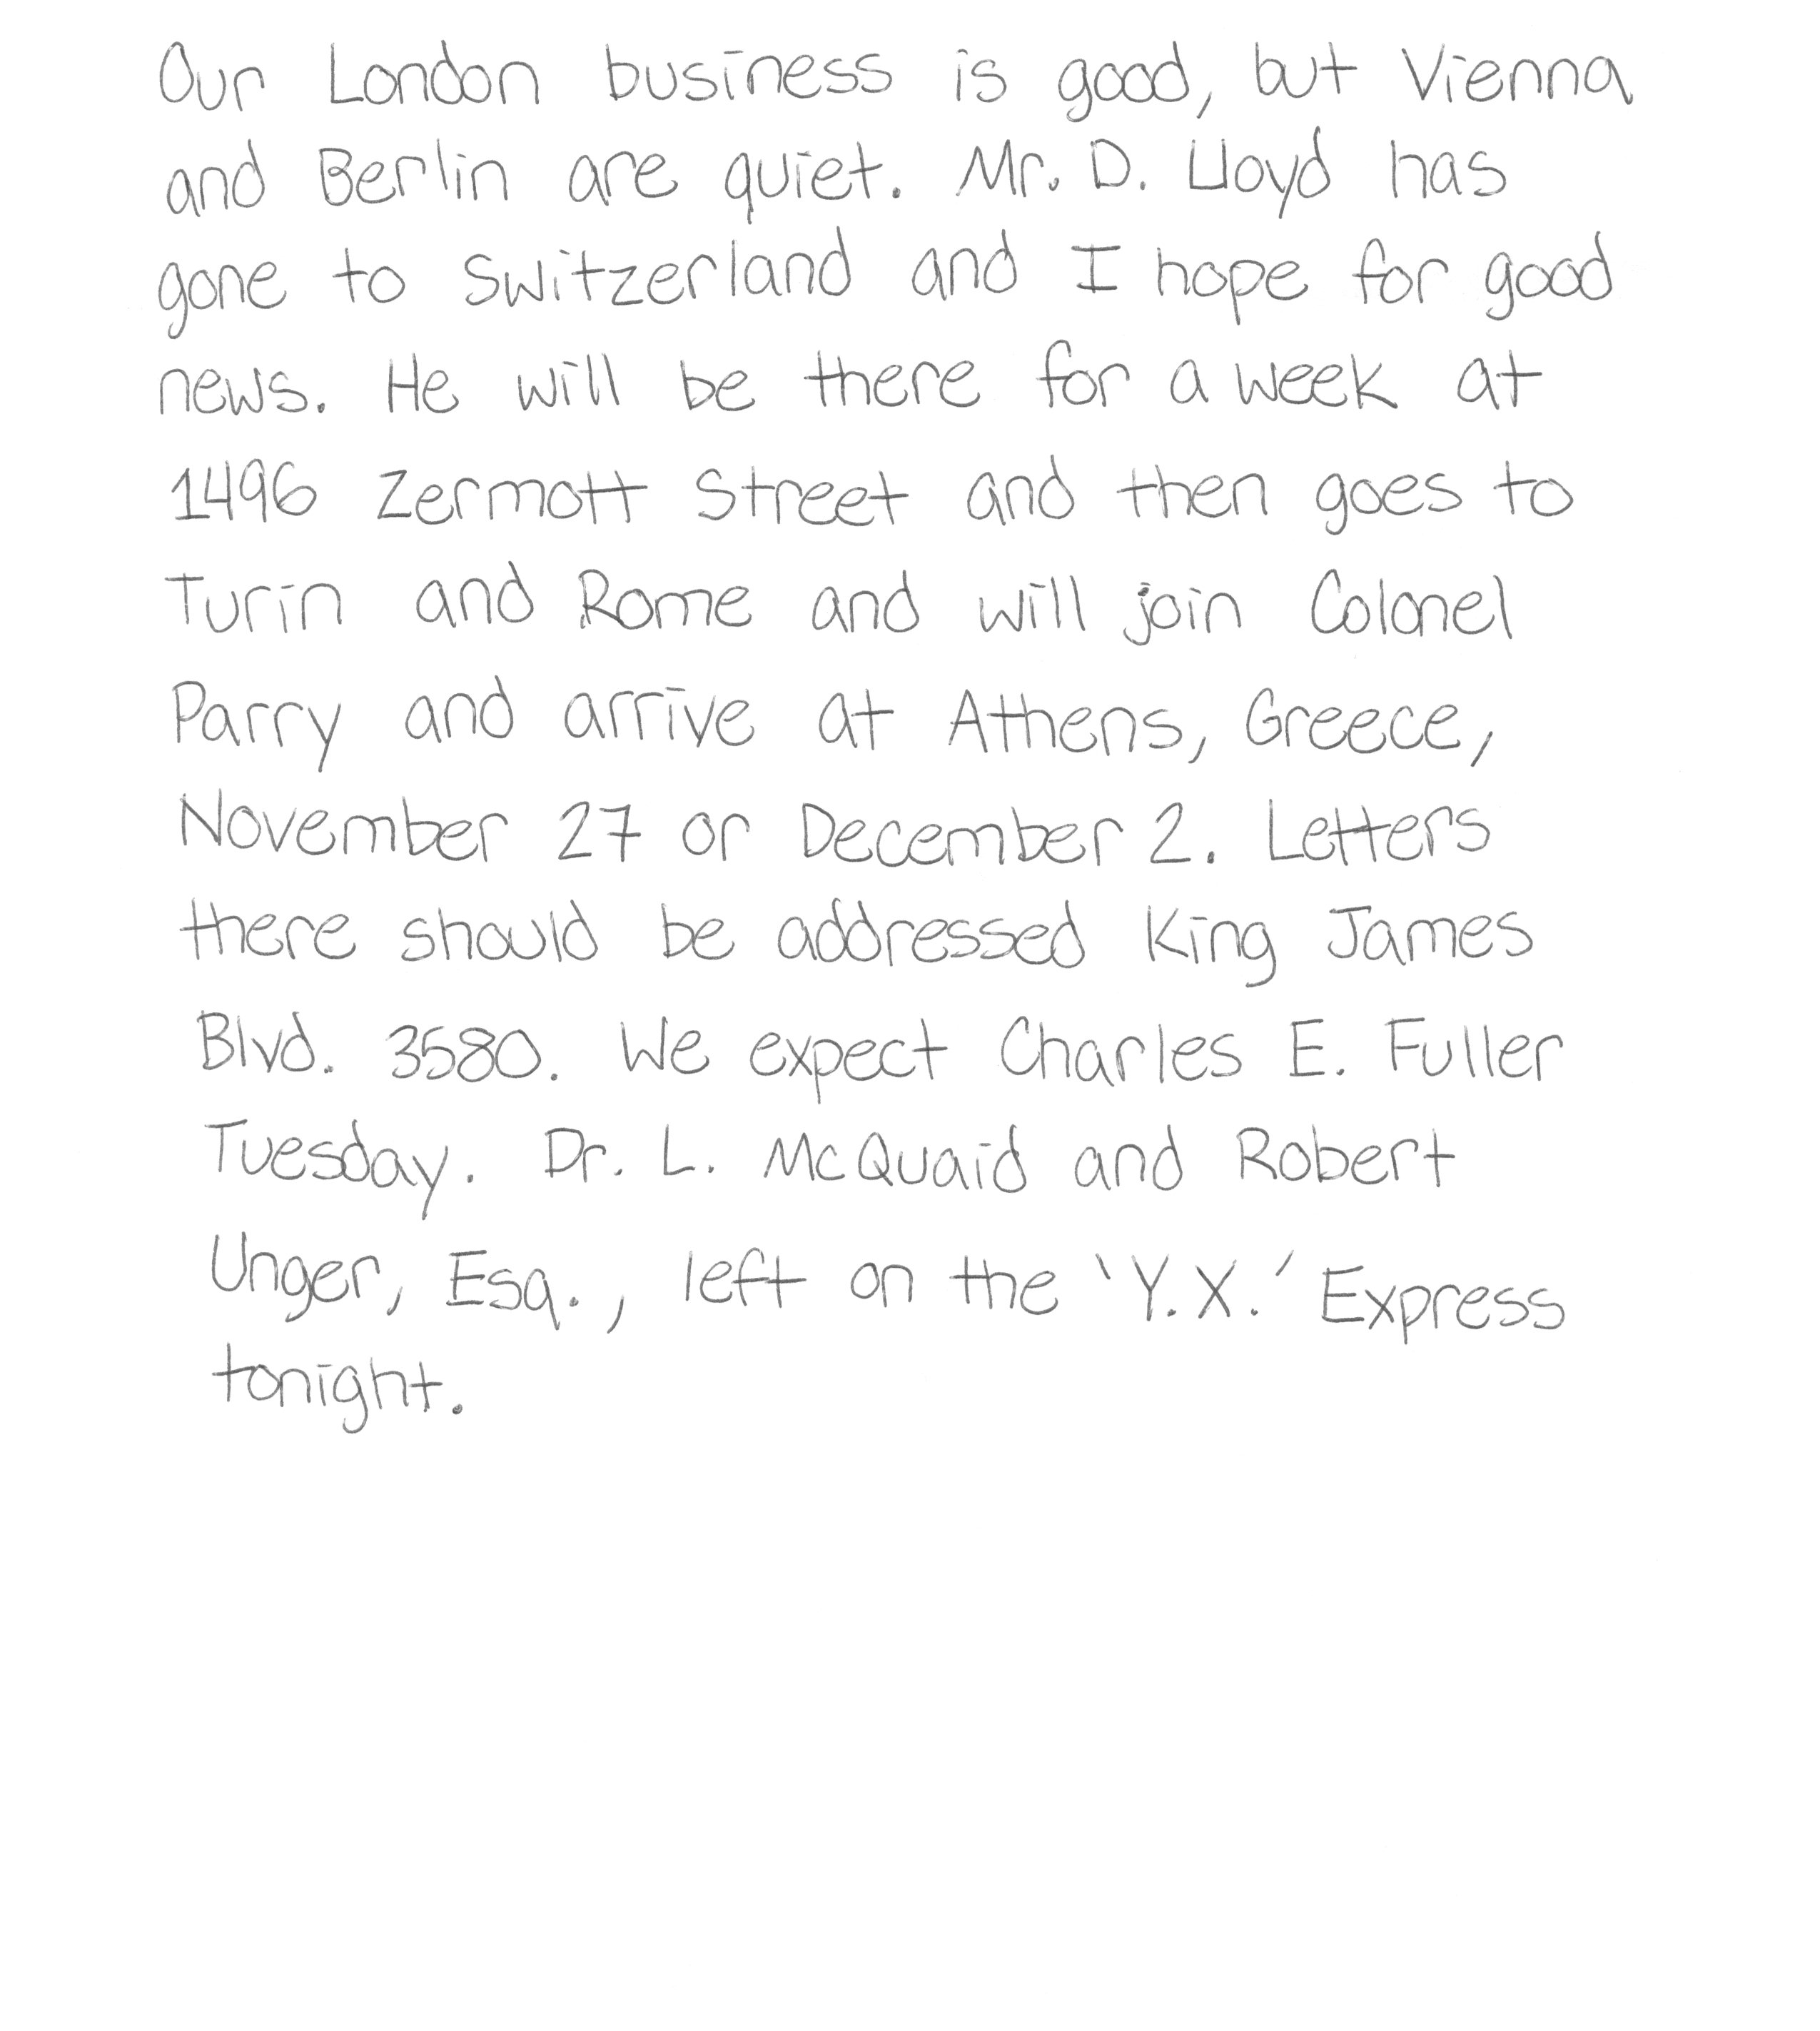 Our London business is good, but Vienna
and Berlin are quiet. Mr. D. Lloyd has
gone to Switzerland and I hope for good
news. He will be there for a week at
1496 Zermott Street and then goes to
Turin and Rome and will join Colonel
Parry and arrive at Athens, Greece,
November 27 or December 2. Letters
there should be addressed King James
Blvd. 3580. We expect Charles E. Fuller
Tuesday. Dr. L. McQuaid and Robert
Unger, Esq., left on the 'Y.X.' Express
tonight.